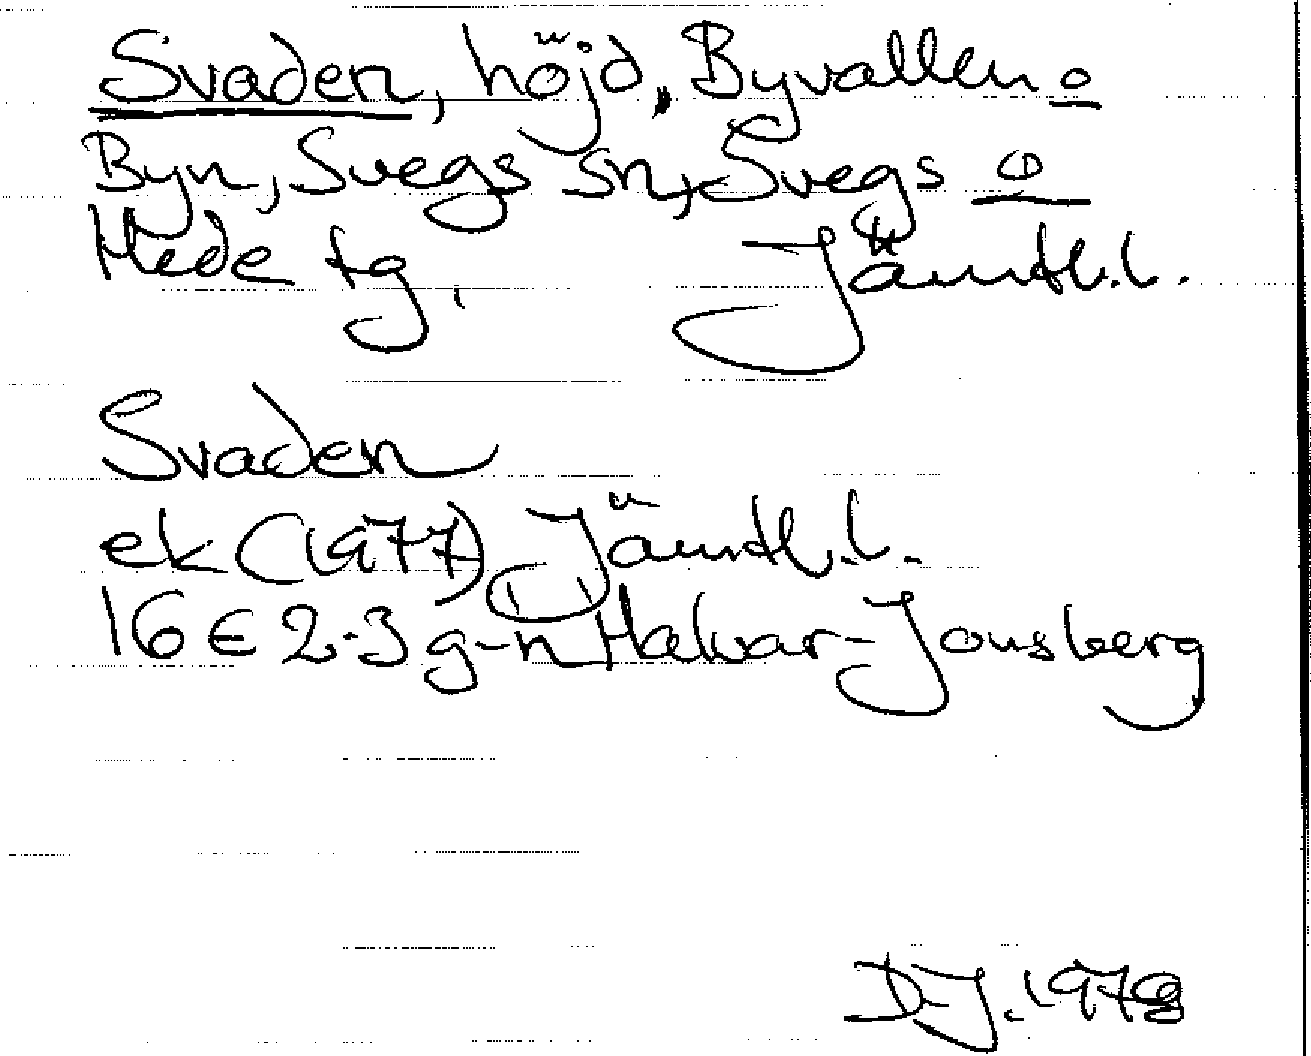 Svaden, höjd, Byvallen o
Byn, Svegs sn, Svegs o
Hede tg, Jämtl.l.
Svaden
ek (1977) Jämtl.l.
16 E 2-3 g-h Halvar-Jonsberg
D-J. 1978